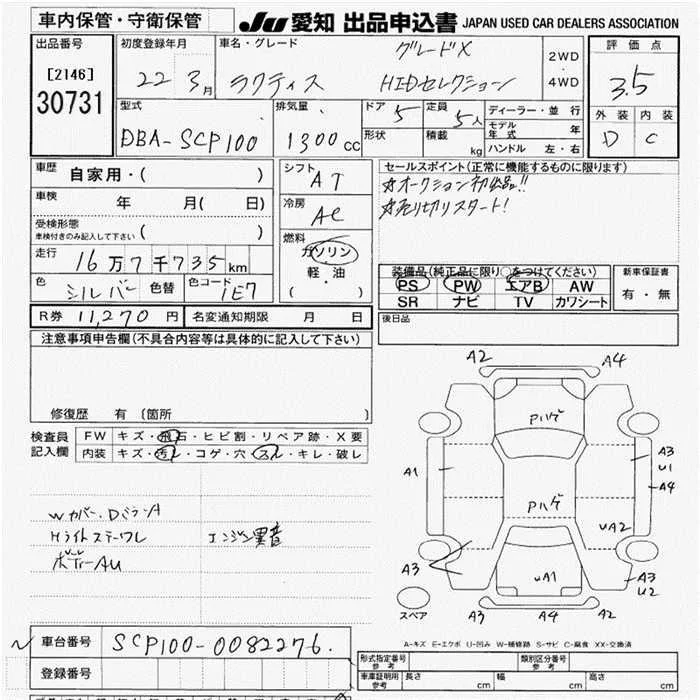 車内保管・守衛保管
JU 愛知 出品申込書 JAPAN USED CAR DEALERS ASSOCIATION
出品番号 初度登録年月 車名・グレード グレードX 2WD・4WD 評価点
[2146] 22 3月 ラクティス HIDセレクション 3.5
30731
型式 排気量 ドア 5 定員 5人 ディーラー・並行 外装 内装
DBA-SCP100 1300cc 形状 積載 kg モデル年式 年 D C
ハンドル 左・右
車歴 自家用・( )
シフト AT
セールスポイント(正常に機能するものに限ります)
☆オークション初出品!!
☆売り切りスタート!
車検 年 月( 日)
冷房 AC
受検形態
車検付きのみ記入して下さい ( )
燃料 ガソリン
軽・油
( ・ )
走行 16万7千735km
色 シルバー 色替 色コード 1E7
装備品(純正品に限り○をつけてください) 新車保証書
PS PW エアB AW 有・無
SR ナビ TV カワシート
R券 11,270円 名変通知期限 月 日
後日品
注意事項申告欄(不具合内容等は具体的に記入して下さい)
修復歴 有 〔箇所 〕
検査員記入欄 FW キズ・飛石・ヒビ割・リペア跡・X要
内装 キズ・汚レ・コゲ・穴・スレ・キレ・破レ
Wカバー・DミラーA
Hライトステーワレ エンジン異音
ボデーAU
A2 A4
Pハゲ
A1 A3
U1
A4
Pハゲ
UA2
A3 UA1 A3
U2
スペア A3 A4 A2
A-キズ E-エクボ U-凹み W-補修跡 S-サビ C-腐食 XX-交換済
車台番号 SCP100-0082276.
登録番号
形式指定番号 参考 類別区分番号 参考
車庫証明用 参考 長さ cm 幅 cm 高さ cm